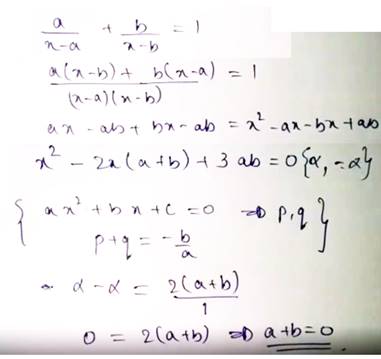 a/(x-a) + b/(x-b) = 1
(a(x-b) + b(x-a))/((x-a)(x-b)) = 1
ax - ab + bx - ab = x² - ax - bx + ab
x² - 2x(a+b) + 3ab = 0 {α, -α}
{ ax² + bx + c = 0 ⇒ p, q
p + q = -b/a }
α - α = 2(a+b)/1
0 = 2(a+b) ⇒ a+b=0